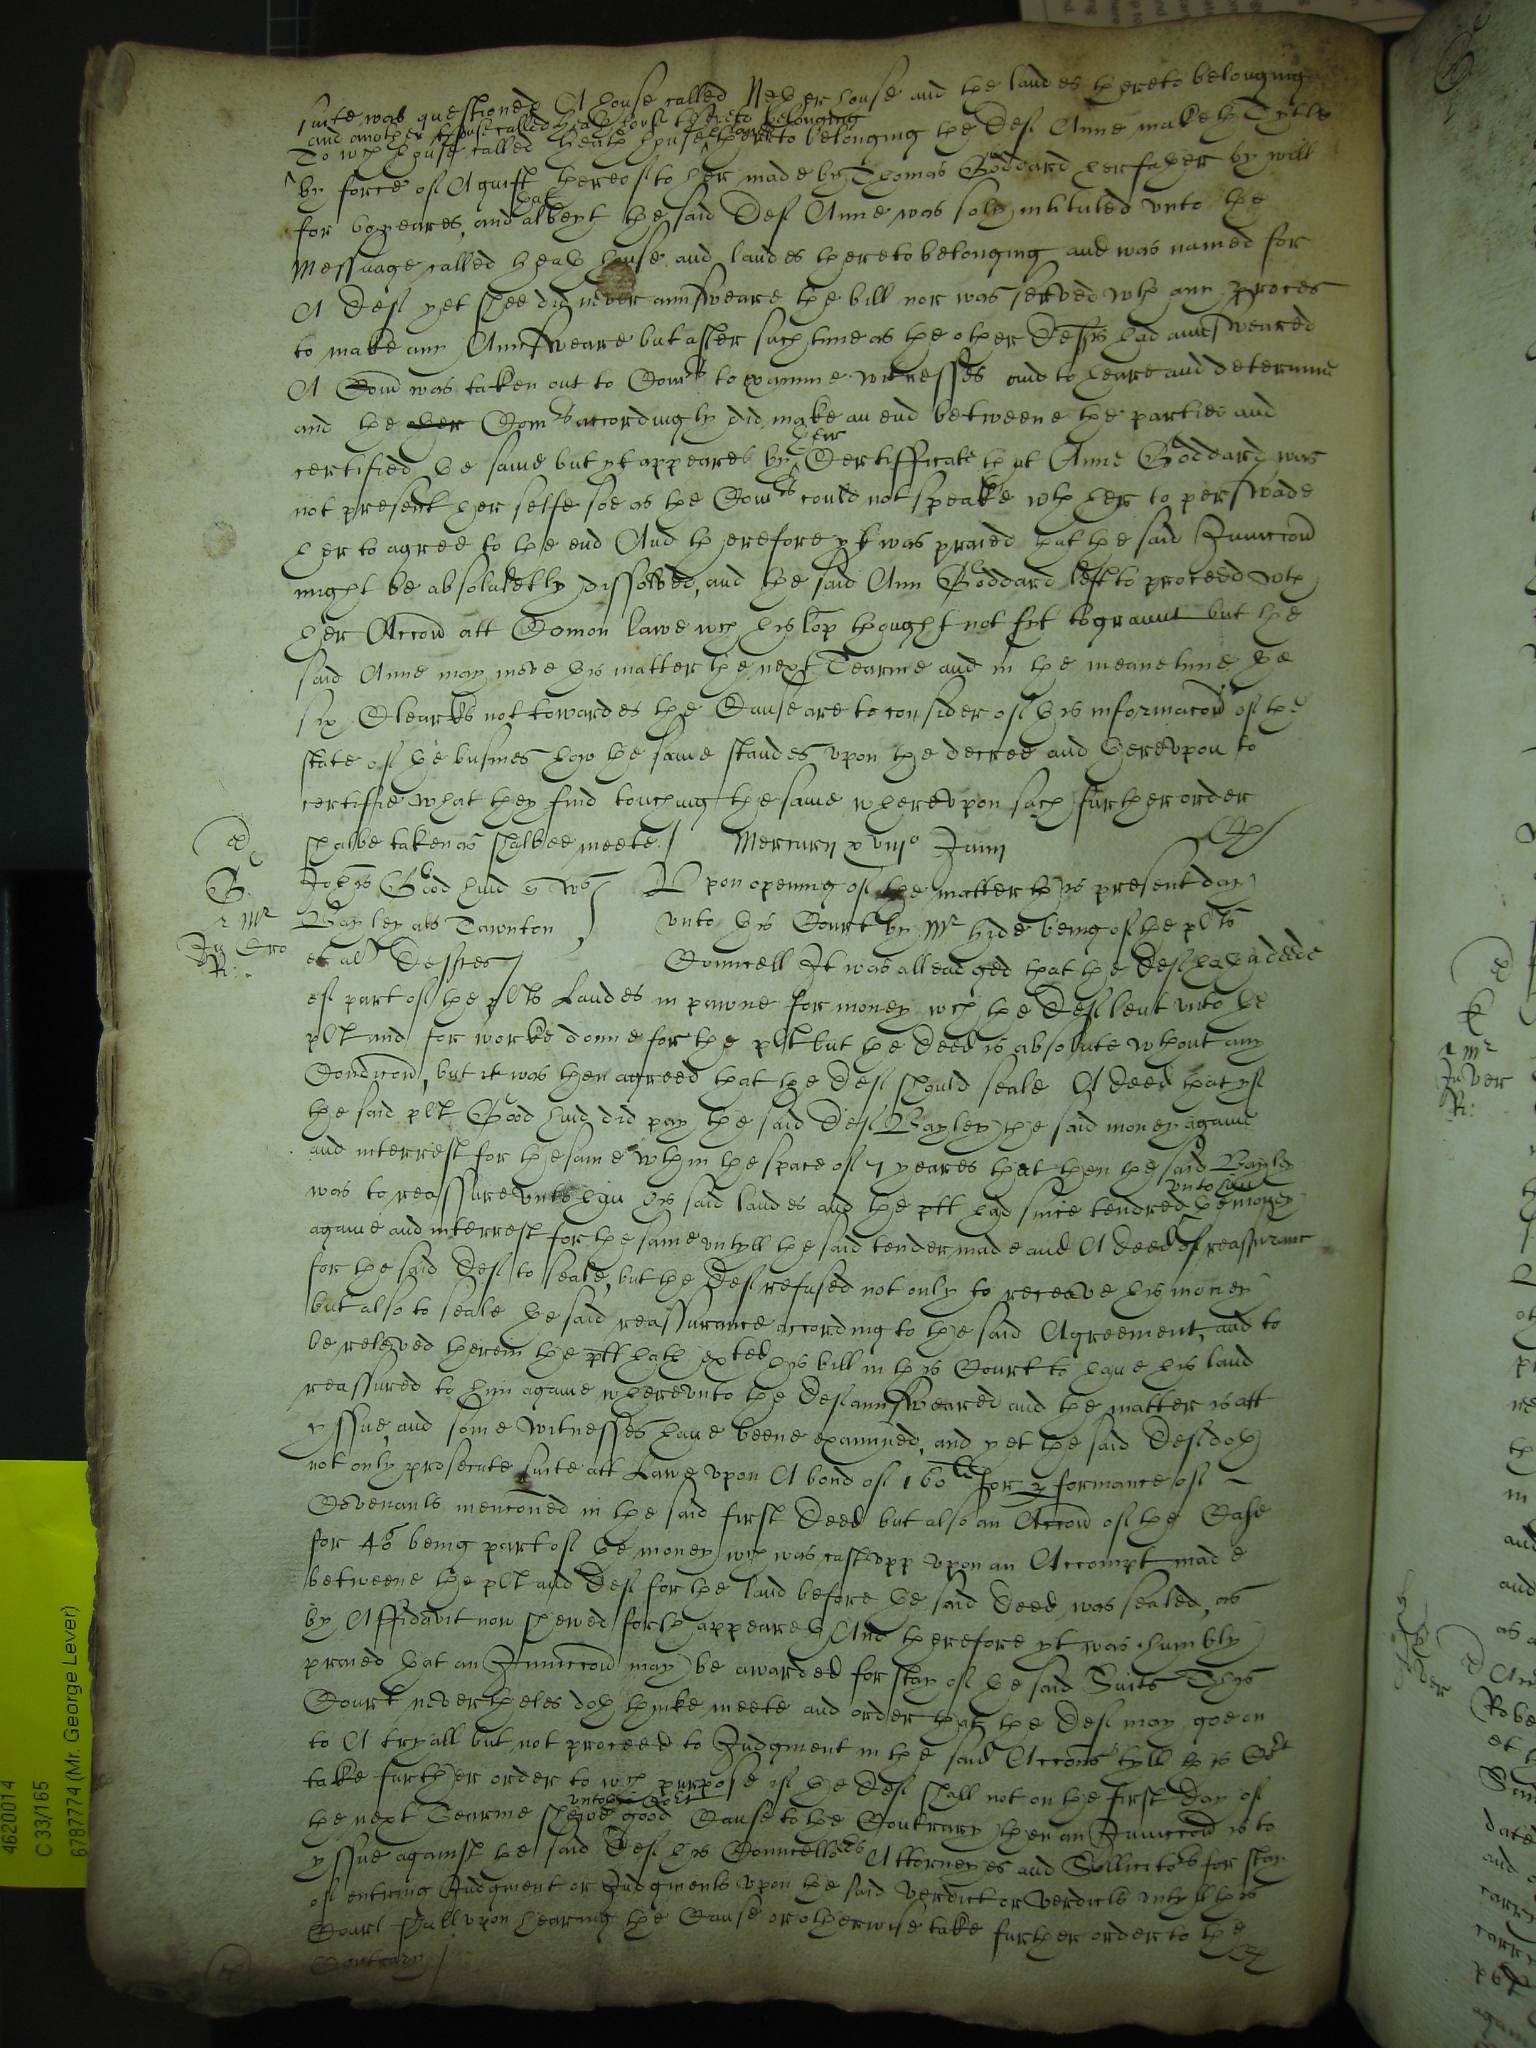 suite was questioned A house called Nether house and the landes thereto belonging
and another house called heath house thereto belonging
To wch house called heath house & landes thereto belonging the Deft Anne maketh Tytle
by force of A guift thereof to her made by Thomas Goddard her father by will
for 60 yeares, and that albeyt the said Deft Anne was soly intituled vnto the
Messuage called heath house and landes thereto belonging and was named for
A Deft yet shee did never aunsweare the bill nor was served wth any proces
to make any Aunsweare but after such tyme as the other Defts had aunsweared
A Comn was taken out to Comrs to examine witnesses and to heare and determine
and the other Comrs accordingly did make an end betweene the parties and
certified the same but yt appeares by their Certifficate that Anne Goddard was
not present her selfe soe as the Comrs could not speake wth her to perswade
her to agree to the end And therefore yt was praied that the said Iniuccion
might be absolutely dissolved, and the said Ann Goddard left to proceed wth
her Accion att Comon lawe wch his lop thought not fit to graunt but the
said Anne may move this matter the next Tearme and in the meane tyme the
six Clearks not towardes the Cause are to consider of this informacion of the
state of the busines how the same standes vpon the decree and therevpon to
certifie what they find touching the same wherevpon such further order
shalbe taken as shalbee meete / Mercurii xviijo Junij
John Good hind qr Ws Vpon opening of the matter this present day
Bayley als Tawnton vnto this Court by Mr hide being of the plts
et al Deftes Councell It was alleadged that the Deft hath a deede
of part of the plts Landes in pawne for money wch the Deft lent vnto the
plt and for worke donne for the plt but the Deed is absolute wthout any
Condicion, but it was then agreed that the Deft should seale A deed that yf
the said plt Good hind did pay the said Deft Bayley the said money againe
and interrest for the same wthin the space of 7 yeares that then the said Bayley
was to reassure vnto him his said landes and the plt had since tendred vnto him the money
againe and interrest for the same vntyll the said tender made and A deed of reassurance
for the said Deft to seale, but the Deft refused not only to receave his money
but also to seale the said reassurance according to the said Agreement, and to
be releived therein the plt hath exted his bill in this Court to haue his land
reassured to him againe wherevnto the Deft aunsweared and the matter is att
yssue, and some witnesses haue beene examined, and yet the said Deft doth
not only prosecute suite att Lawe vpon A bond of 160li for performance of
Covenants mencioned in the said first Deed but also an Accion of the Case
for 46 being part of the money wch was cast vpp vpon an Accompt made
betweene the plt and Deft for the land before the said Deed was sealed, as
by Affidavit now shewed forth appeareth And therefore yt was humbly
praied that an Iniuccion may be awarded for stay of the said Suits This
Court neverthelcs doth thinke meete and order that the Deft may goe on
to A tryall but not proceed to Iudgment in the said Accions tyll this Court
take further order to wch purpose if the Deft shall not on the first Day of
the next Tearme shewe vnto this Court good Cause to the Contrary then an Iniuccion is to
yssue against the said Deft his Councellors Attorneyes and Sollicitors for stay
of entring Iudgment or Iudgments vpon the said verdict or verdicts vntyll this
Court shall vpon hearing the Cause or otherwise take further order to the
Contrary /
4620014
C 33/165
6787774 (Mr. George Lever)